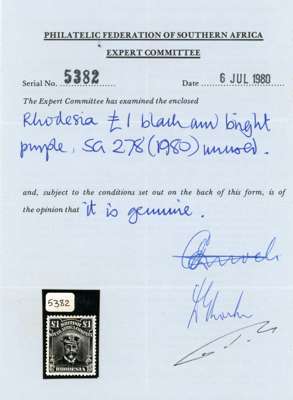 PHILATELIC FEDERATION OF SOUTHERN AFRICA
EXPERT COMMITTEE
Serial No. 5382 Date 6 JUL 1980
The Expert Committee has examined the enclosed
Rhodesia £1 black and bright
purple, SG 278 (1980) unused.
and, subject to the conditions set out on the back of this form, is of
the opinion that it is genuine.
5382
£1 BRITISH £1
SOUTH AFRICA COMPANY
RHODESIA